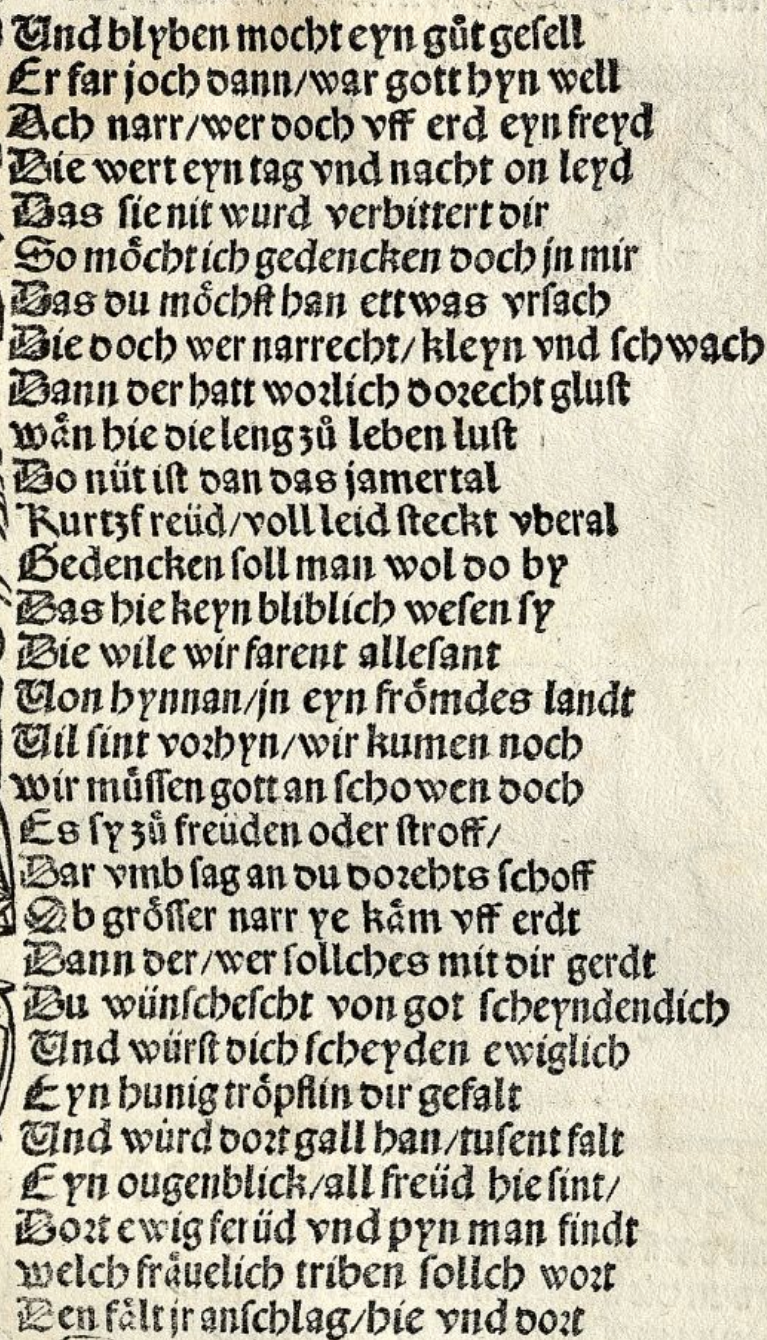 Und blyben mocht eyn gůt gesell
Er far joch dann/war gott hyn well
Ach narr/wer doch vff erd eyn freyd
Die wert eyn tag vnd nacht on leyd
Das sie nit wurd verbittert dir
So möcht ich gedencken doch jn mir
Das du möchst han ettwas vrsach
Die doch wer narrecht/kleyn vnd schwach
Dann der hatt worlich dorecht glust
wån hie die leng zů leben lust
Do nüt ist dan das jamertal
Kurtz freüd/voll leid steckt vberal
Gedencken soll man wol do by
Das hie keyn bliblich wesen sy
Die wile wir farent allesant
Von hynnan/jn eyn frömdes landt
Vil sint vorhyn/wir kumen noch
wir můssen gott an schowen doch
Es sy zů freüden oder stroff/
Dar vmb sag an du dorehts schoff
Ob grösser narr ye kåm vff erdt
Dann der/wer sollches mit dir gerdt
Du wünschescht von got scheynden dich
Und würst dich scheyden ewiglich
Eyn hunig tröpflin dir gefalt
Und würd dort gall han/tusent falt
Eyn ougenblick/all freüd hie sint/
Dort ewig ferüd vnd pyn man findt
welch fråuelich triben sollch wort
Den fålt jr anschlag/hie vnd dort